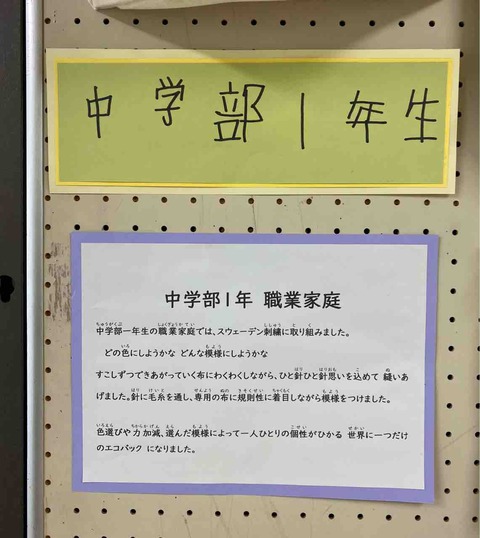 中学部1年生
中学部1年 職業家庭
中学部一年生の職業家庭では、スウェーデン刺繍に取り組みました。
どの色にしようかな どんな模様にしようかな
すこしずつできあがっていく布にわくわくしながら、ひと針ひと針思いを込めて 縫いあ
げました。針に毛糸を通し、専用の布に規則性に着目しながら模様をつけました。
色選びや力加減、選んだ模様によって一人ひとりの個性がひかる 世界に一つだけ
のエコバック になりました。